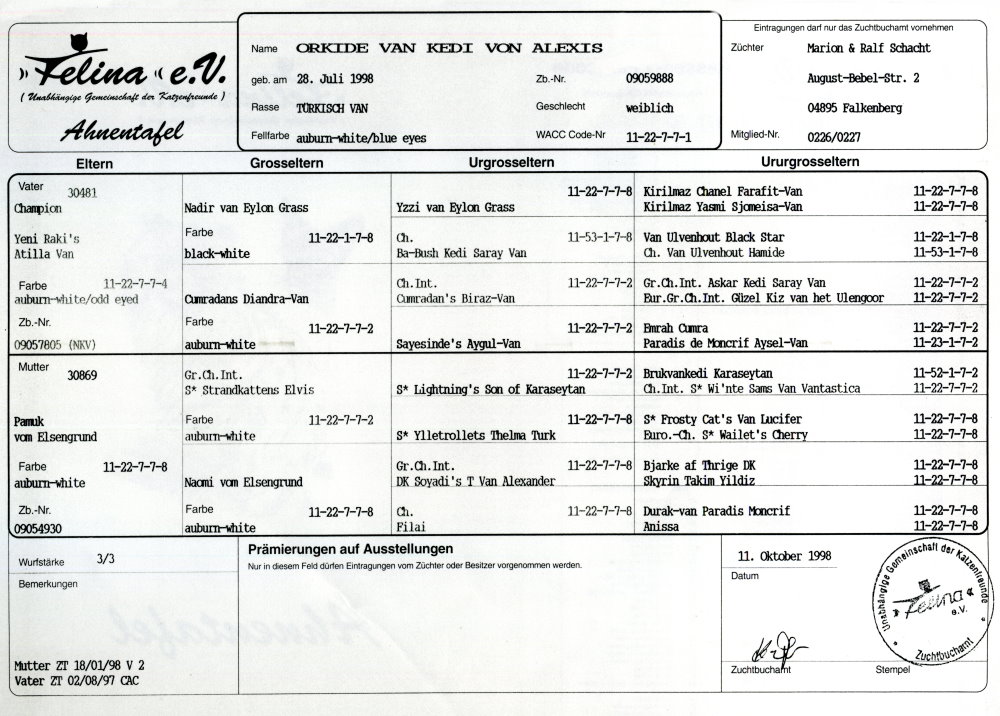 Felina e.V.
( Unabhängige Gemeinschaft der Katzenfreunde )
Ahnentafel
Name ORKIDE VAN KEDI VON ALEXIS
geb. am 28. Juli 1998 Zb.-Nr. 09059888
Rasse TÜRKISCH VAN Geschlecht weiblich
Fellfarbe auburn-white/blue eyes WACC Code-Nr 11-22-7-7-1
Eintragungen darf nur das Zuchtbuchamt vornehmen
Züchter Marion & Ralf Schacht
August-Bebel-Str. 2
04895 Falkenberg
Mitglied-Nr. 0226/0227
Eltern Grosseltern Urgrosseltern Ururgrosseltern
Vater 30481
Champion
Yeni Raki's
Atilla Van
Farbe 11-22-7-7-4
auburn-white/odd eyed
Zb.-Nr.
09057805 (NKV)
Nadir van Eylon Grass
Farbe 11-22-1-7-8
black-white
Cumradans Diandra-Van
Farbe 11-22-7-7-2
auburn-white
11-22-7-7-8
Yzzi van Eylon Grass
Ch. 11-53-1-7-8
Ba-Bush Kedi Saray Van
Ch.Int. 11-22-7-7-2
Cumradan's Biraz-Van
11-22-7-7-2
Sayesinde's Aygul-Van
Kirilmaz Chanel Farafit-Van 11-22-7-7-8
Kirilmaz Yasmi Sjomeisa-Van 11-22-7-7-8
Van Ulvenhout Black Star 11-22-1-7-8
Ch. Van Ulvenhout Hamide 11-53-1-7-8
Gr.Ch.Int. Askar Kedi Saray Van 11-22-7-7-2
Eur.Gr.Ch.Int. Güzel Kiz van het Ulengoor 11-22-7-7-2
Emrah Cumra 11-22-7-7-2
Paradis de Moncrif Aysel-Van 11-23-1-7-2
Mutter 30869
Pamuk
vom Elsengrund
Farbe 11-22-7-7-8
auburn-white
Zb.-Nr.
09054930
Gr.Ch.Int.
S* Strandkattens Elvis
Farbe 11-22-7-7-2
auburn-white
Naomi vom Elsengrund
Farbe 11-22-7-7-8
auburn-white
11-22-7-7-2
S* Lightning's Son of Karaseytan
11-22-7-7-8
S* Ylletrollets Thelma Turk
Gr.Ch.Int. 11-22-7-7-8
DK Soyadi's T Van Alexander
Ch. 11-22-7-7-8
Filai
Brukvankedi Karaseytan 11-52-1-7-2
Ch.Int. S* Wi'nte Sams Van Vantastica 11-22-7-7-2
S* Frosty Cat's Van Lucifer 11-22-7-7-8
Euro.-Ch. S* Wailet's Cherry 11-22-7-7-8
Bjarke af Thrige DK 11-22-7-7-8
Skyrin Takim Yildiz 11-22-7-7-8
Durak-van Paradis Moncrif 11-22-7-7-8
Anissa 11-22-7-7-8
Wurfstärke 3/3
Bemerkungen
Mutter ZT 18/01/98 V 2
Vater ZT 02/08/97 CAC
Prämierungen auf Ausstellungen
Nur in diesem Feld dürfen Eintragungen vom Züchter oder Besitzer vorgenommen werden.
11. Oktober 1998
Datum
Zuchtbuchamt Stempel
Unabhängige Gemeinschaft der Katzenfreunde
Felina
e.V.
Zuchtbuchamt